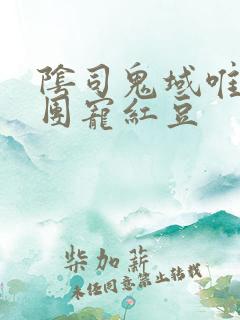 陰司鬼域唯
團寵紅豆
柴加薪
未經同意禁止轉載